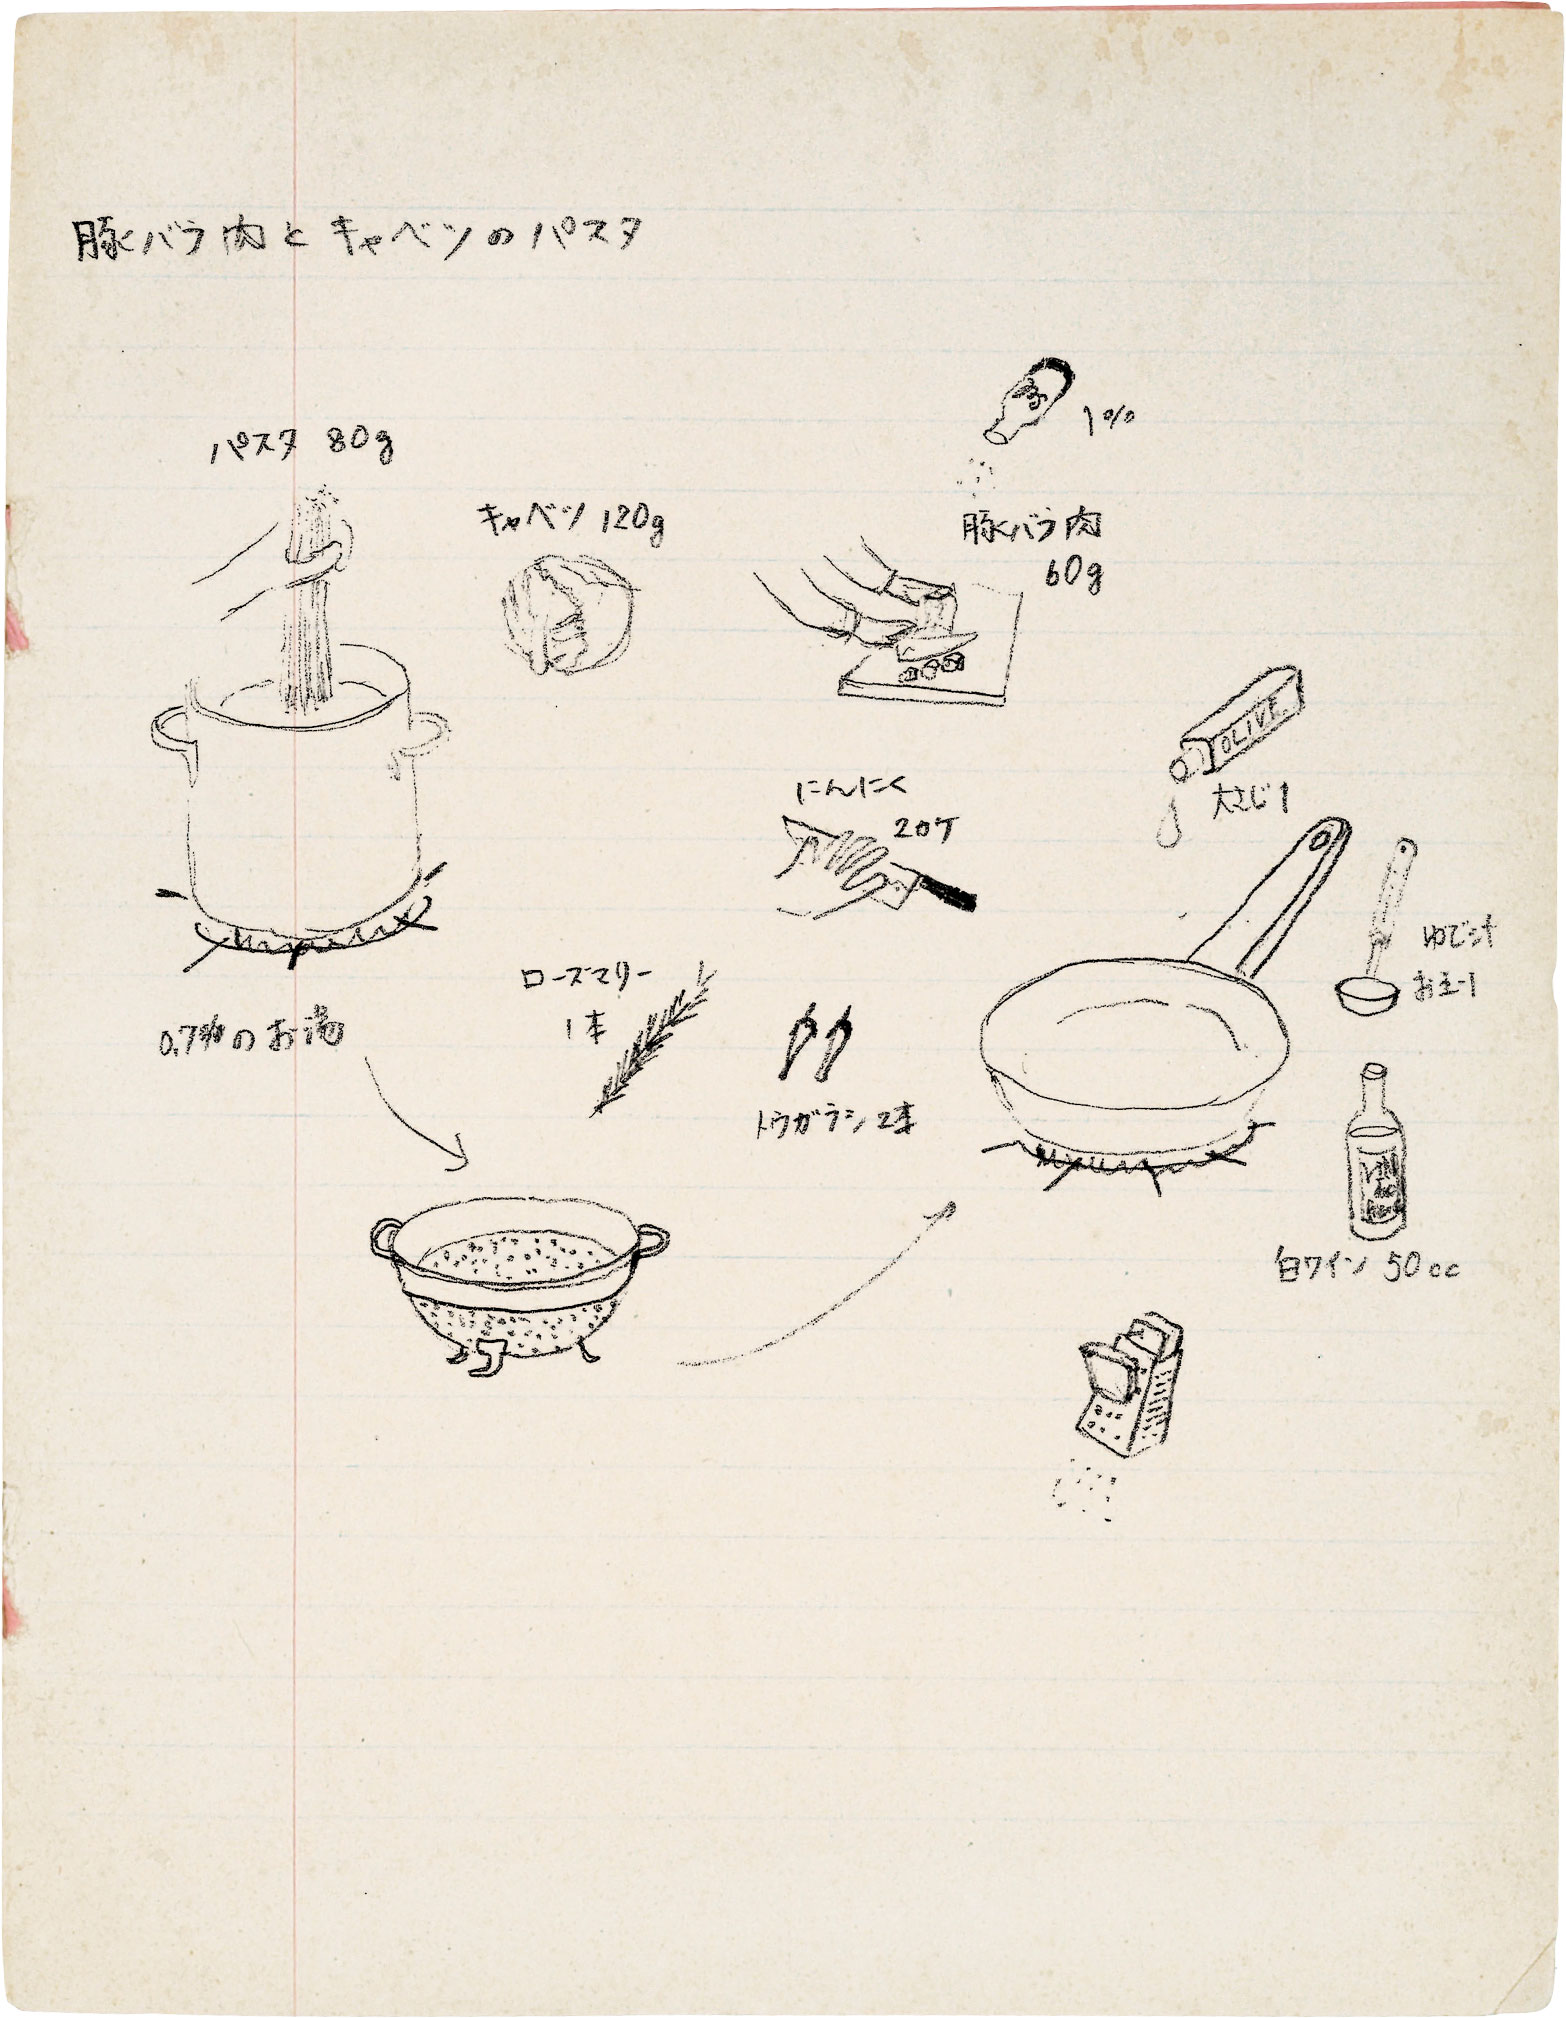 豚バラ肉とキャベツのパスタ
1%
パスタ 80g
キャベツ 120g
豚バラ肉
60g
OLIVE
大さじ1
にんにく
2ケ
ゆで汁
お玉1
ローズマリー
1本
0.7%のお湯
トウガラシ 2本
白ワイン 50cc